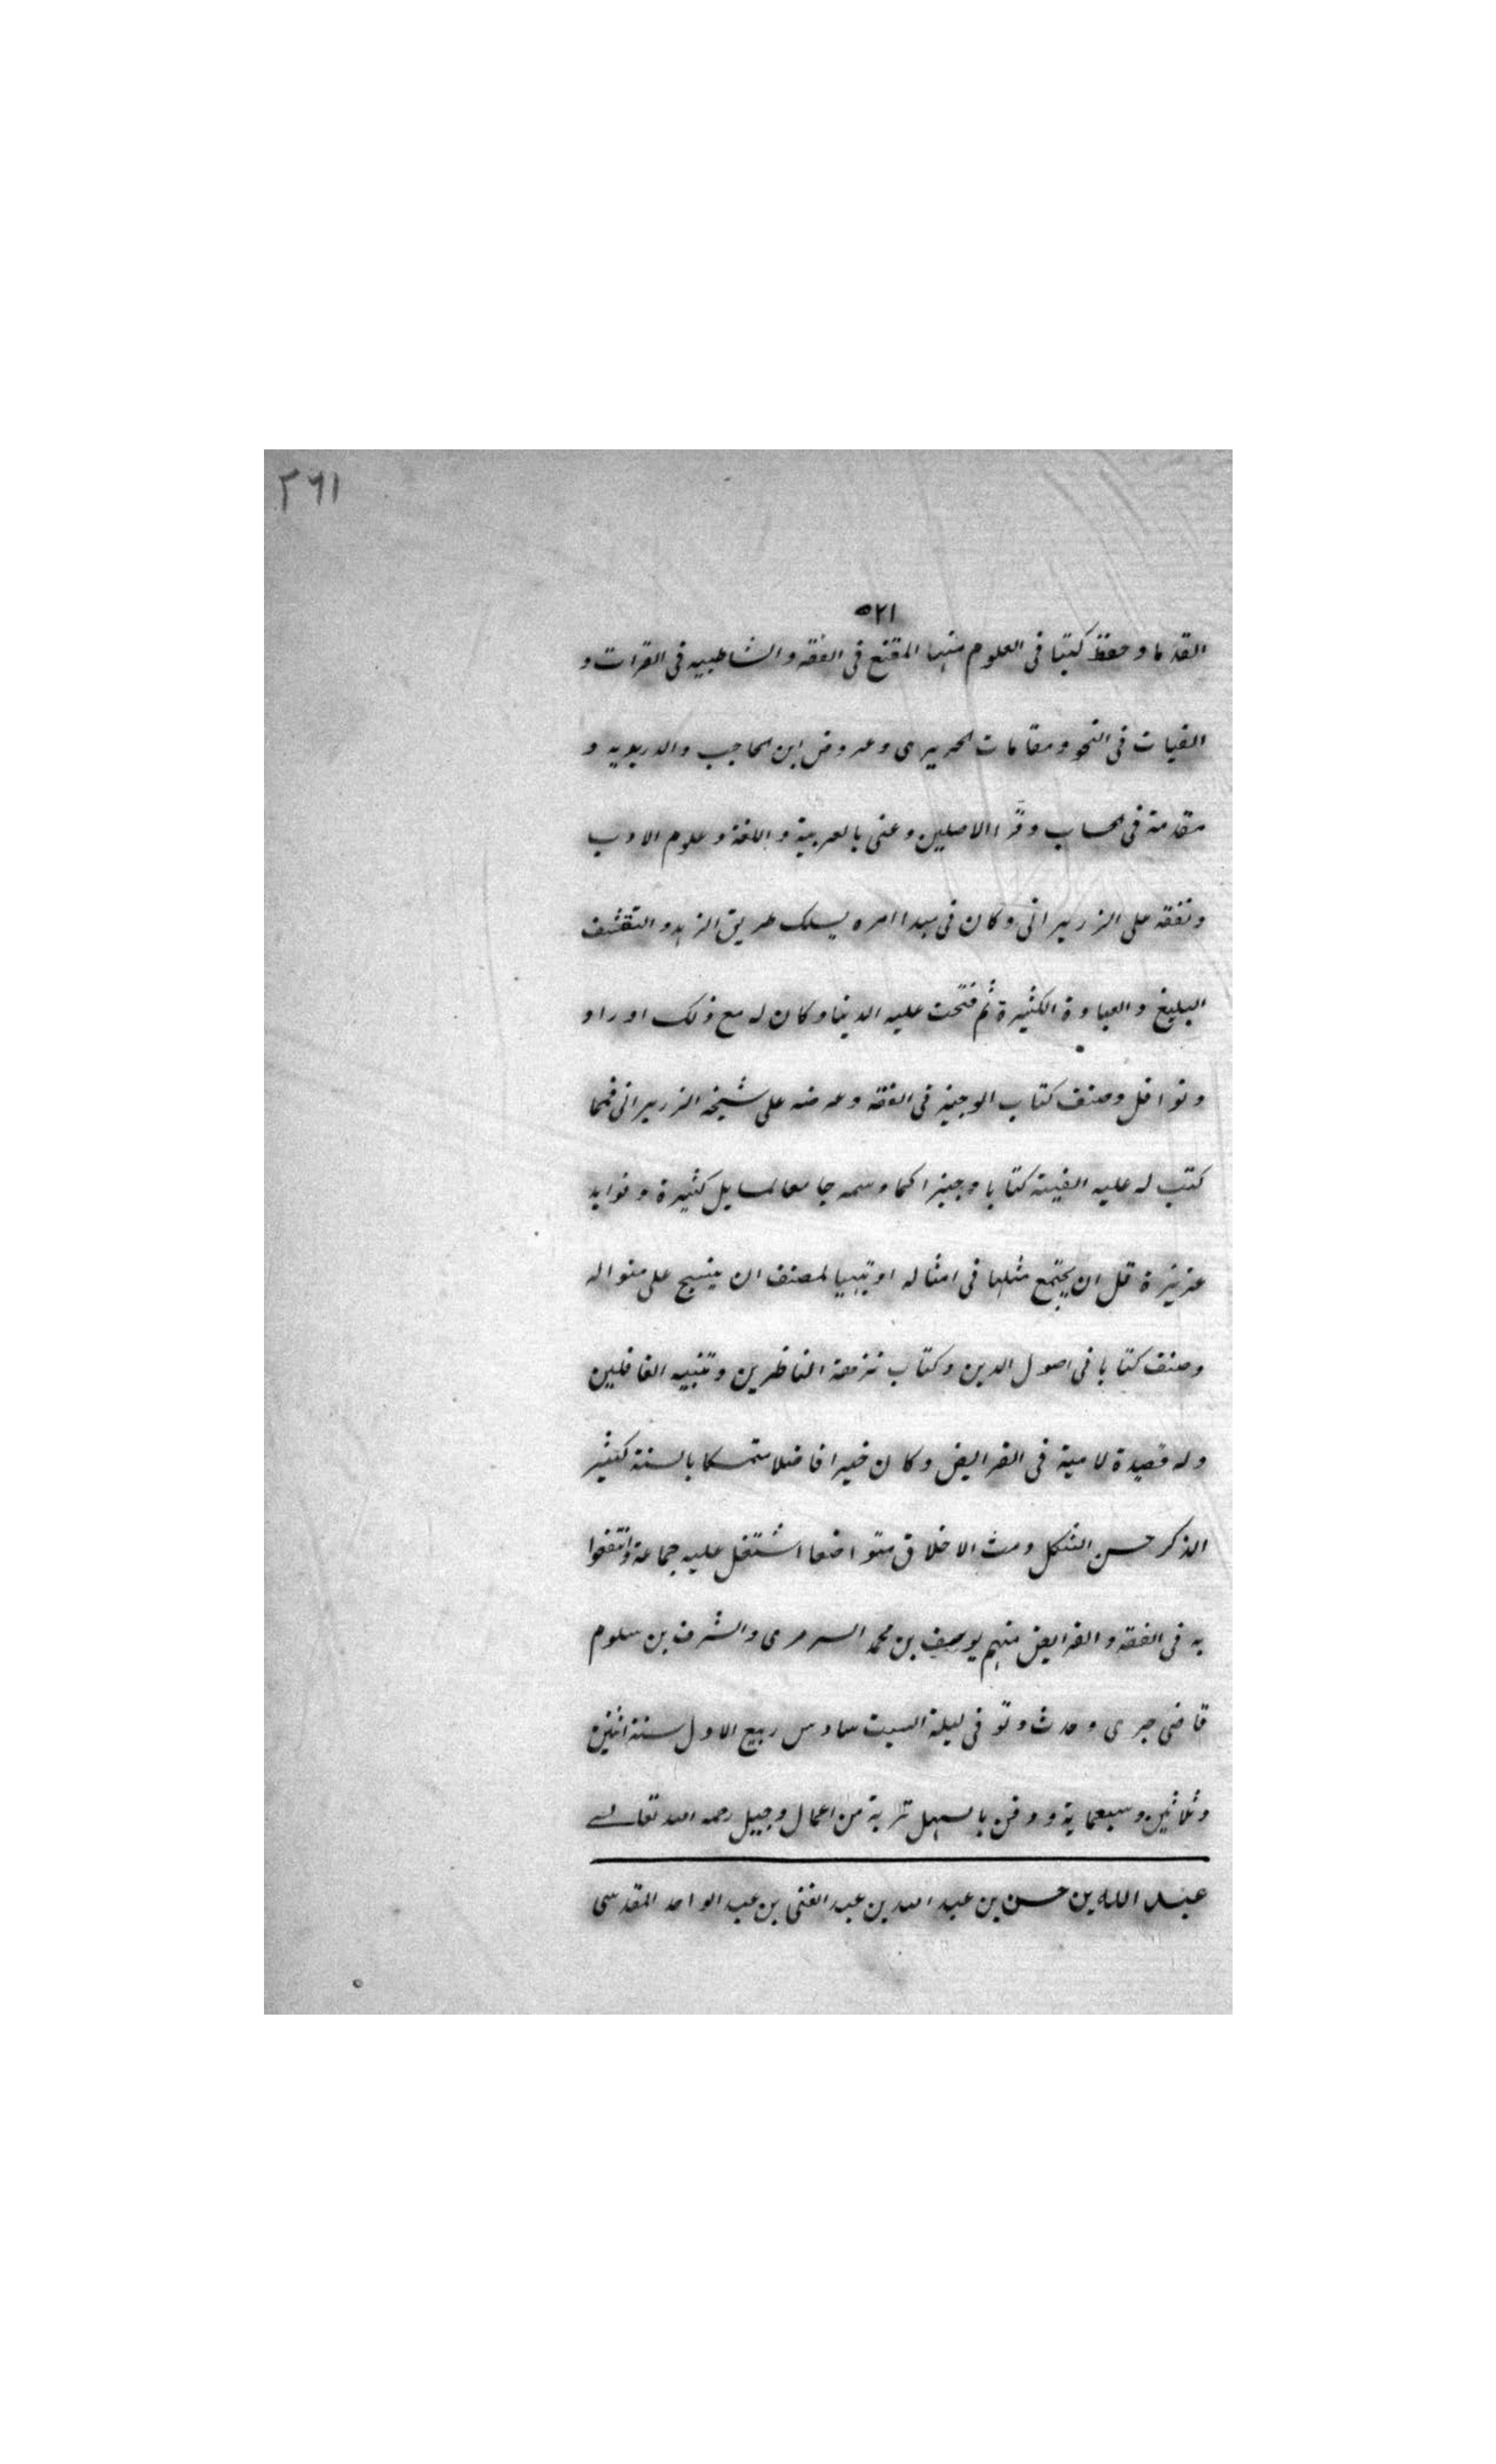 ٢٦١
٥٢١
القدما وحفظ كتبا في العلوم منها المقنع في الفقه والشاطبيه في القرات و
الفيات في النحو ومقامات الحريرى وعروض ابن الحاجب والدريديه و
مقدمة في الحساب وقرا الاصلين وعنى بالعربية واللغة وعلوم الادب
وتفقه على الزريراني وكان في مبدا امره يسلك طريق الزهد والتقشف
البليغ والعبادة الكثيرة ثم فتحت عليه الدنيا وكان له مع ذلك اوراد
ونوافل وصنف كتاب الوجيز في الفقه وعرضه على شيخه الزريراني فمما
كتب له عليه الفيته كتابا وجيزا كما وسمه جامعا لمسايل كثيرة وفوايد
عزيزة قل ان يجتمع مثلها في امثاله او يتهيا لمصنف ان ينسج على منواله
وصنف كتابا في اصول الدين وكتاب نزهة الناظرين وتنبيه الغافلين
وله قصيدة لامية في الفرايض وكان خيرا فاضلا متمسكا بالسنة كثير
الذكر حسن الشكل ومث الاخلاق متواضعا اشتغل عليه جماعة وانتفعوا
به في الفقه والفرايض منهم يوسف بن محمد السرمرى والشرف بن سلوم
قاضي حربى وحدث وتوفي ليلة السبت سادس ربيع الاول سنة اثنين
وثلاثين وسبعماية ودفن بالسهل تربة من اعمال وجيل رحمه الله تعالى
عبد الله بن حسن بن عبد الله بن عبد الغني بن عبد الواحد المقدسى